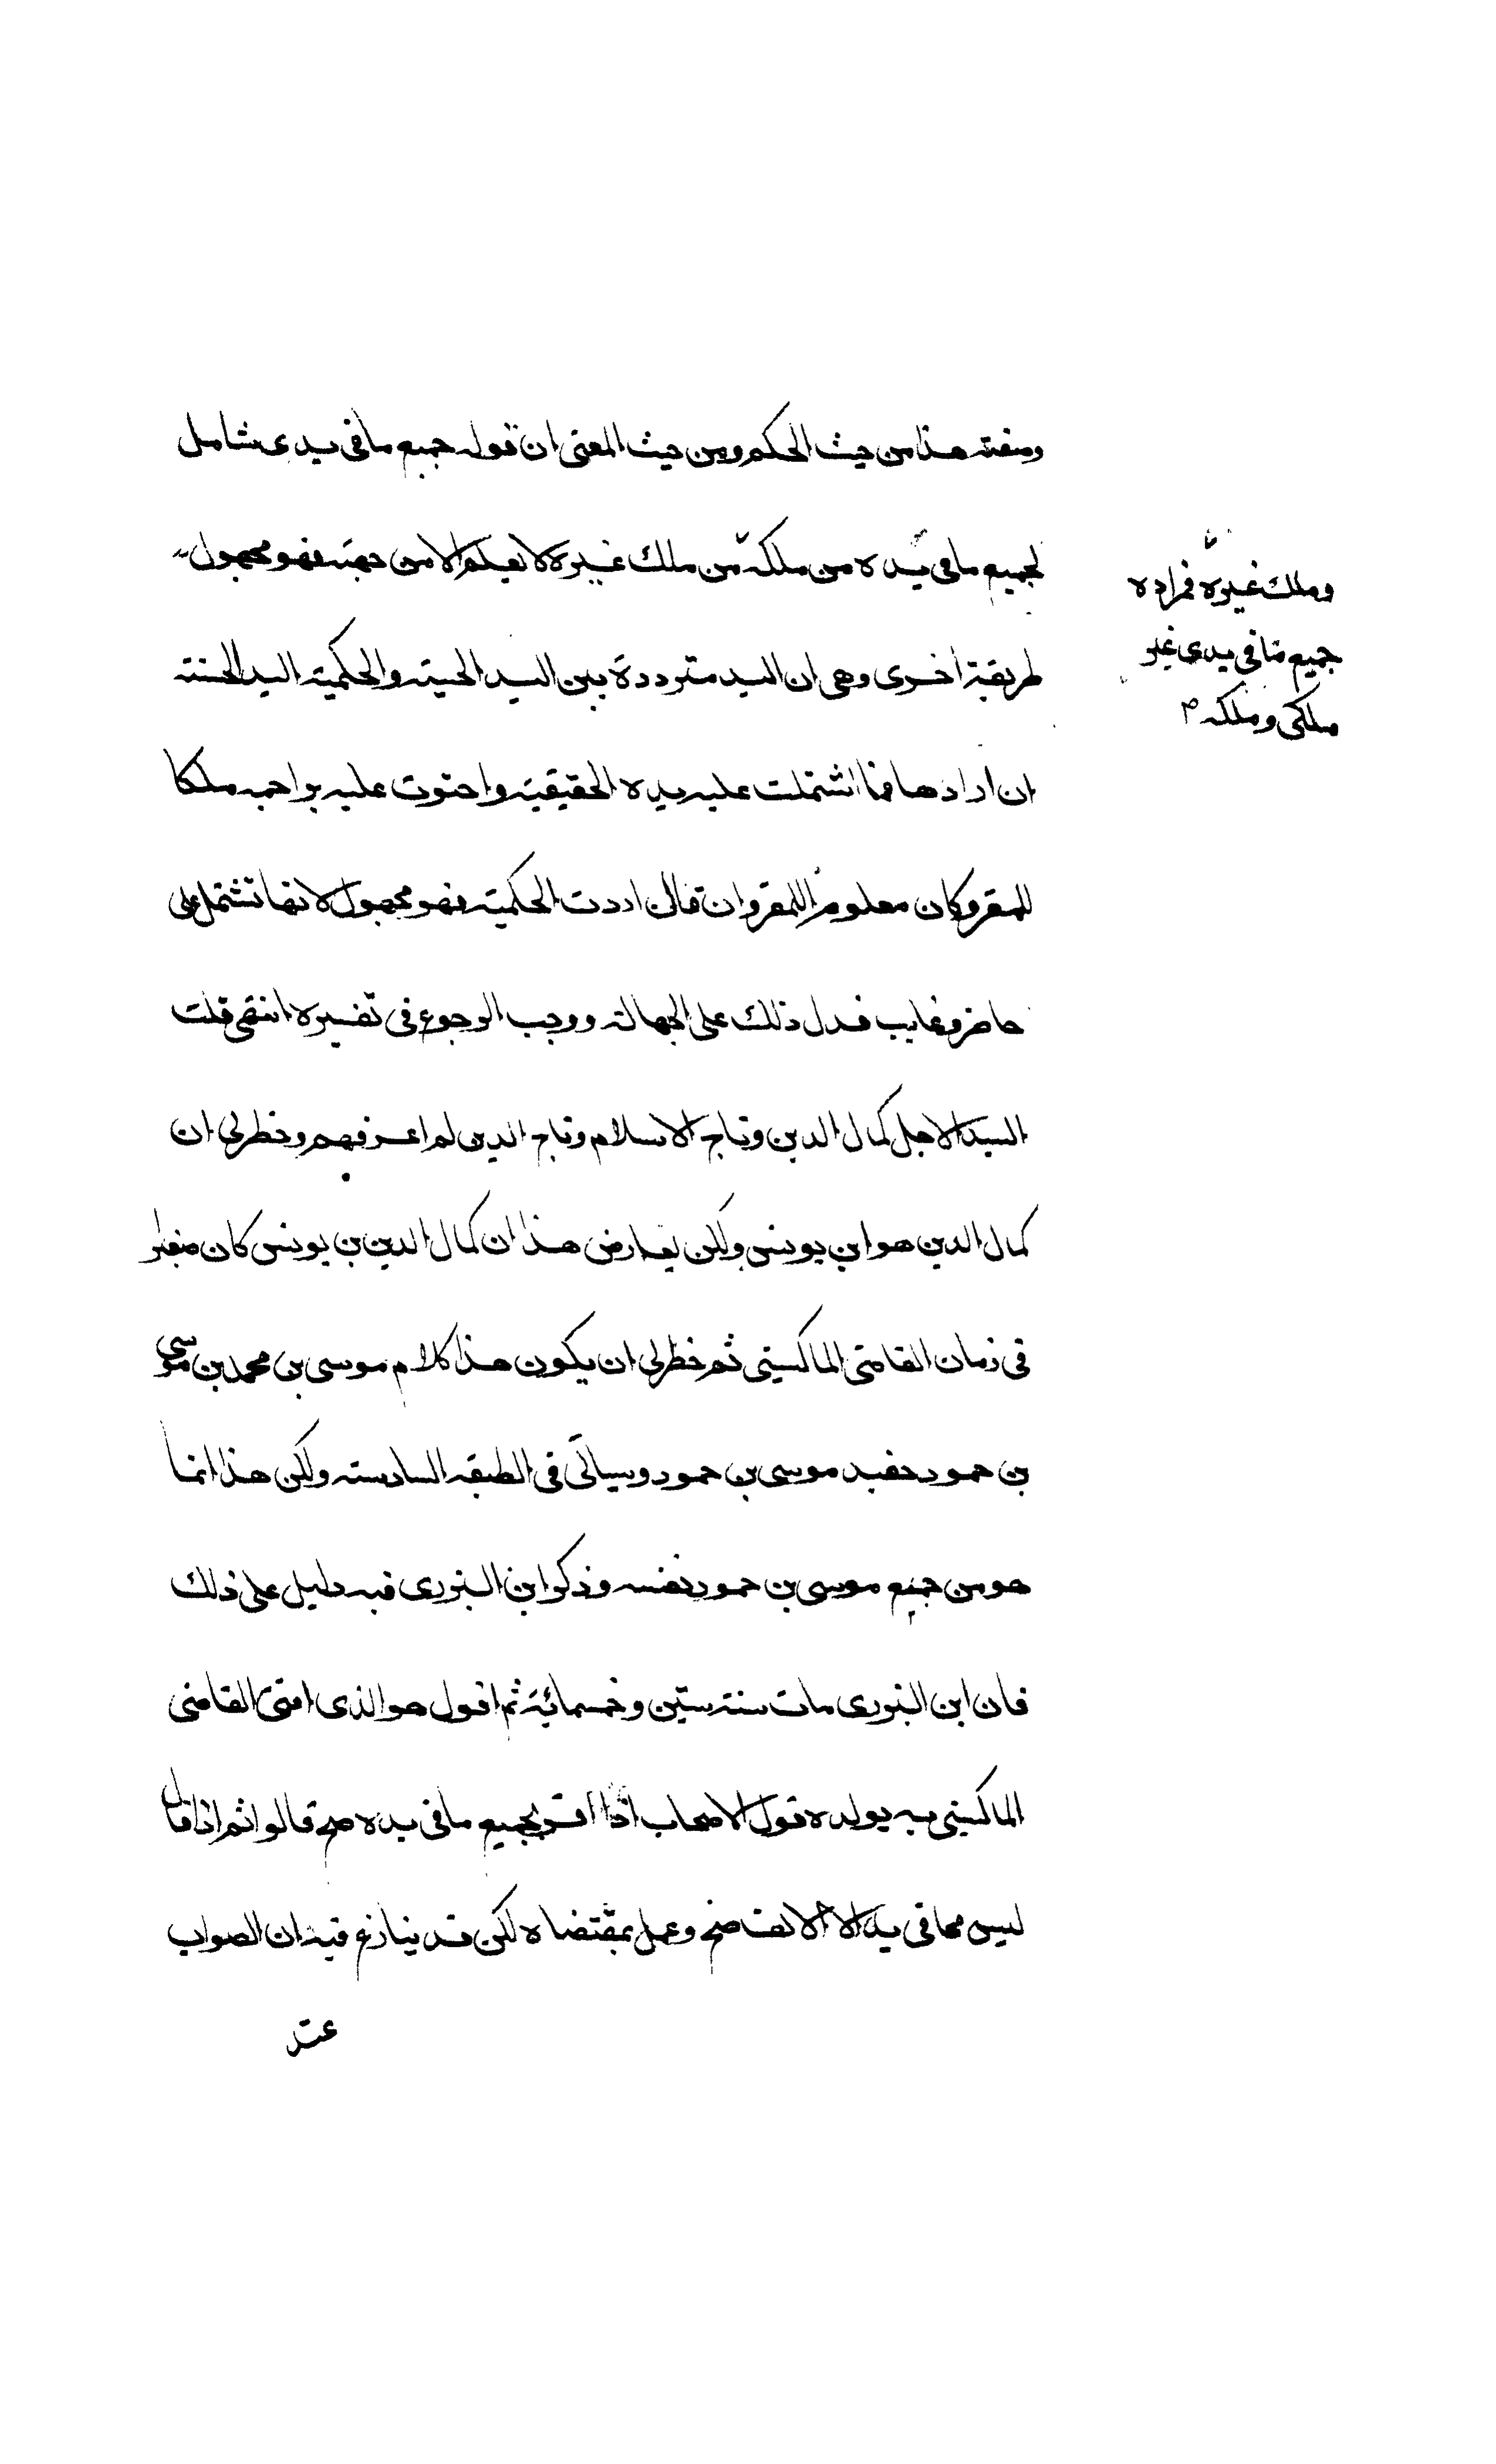 وصفته هذا من حيث الحكم ومن حيث المعنى ان قوله جميع ما في يدى شامل
لجميع ما في يده من ملكه من ملك غيره لا يعلم الا من جهته فهو مجهول
وملك غيره فمراده
جميع ما في يدى غير
ملكى وملكه
طريقة اخرى وهى ان اليد مترددة بين اليد الحسية والحكمية اليد الحسنة
ان ارادها فما اشتملت عليه يده الحقيقية واحتوت عليه براحمه ملكا
للمقر وكان معلوم للمقر وان قال اردت الحكمية فهو مجهول لانها تشتمل على
حاضر وغايب فدل ذلك على الجهالة ووجب الرجوع في تفسيره انتهى قلت
السيد الاجل كمال الدين وتاج الاسلام وتاج الدين لم اعرفهم وخطر لى ان
كمال الدين هو ابن يونس ولكن يعارض هذا ان كمال الدين بن يونس كان صغيرا
في زمان القاضى الماكسينى ثم خطر لى ان يكون هذا كلام موسى بن محمد بن موسى
بن حمود حفيد موسى بن حمود وسيأتى في الطبقة السادسة ولكن هذا انما
هو من جميع موسى بن حمود نفسه وذكر ابن البزرى فيه دليل على ذلك
فان ابن البزرى مات سنة ستين وخمسمائة ثم اقول هو الذى افتى القاضى
الماكسينى به يولده قول الاصحاب اذا اقر بجميع ما في يده صح قالوا ثم اذا قال
ليس مما في يدى الا الالف صح وعمل بمقتضاه لكن قد ينازع فيه ان الصواب
عند